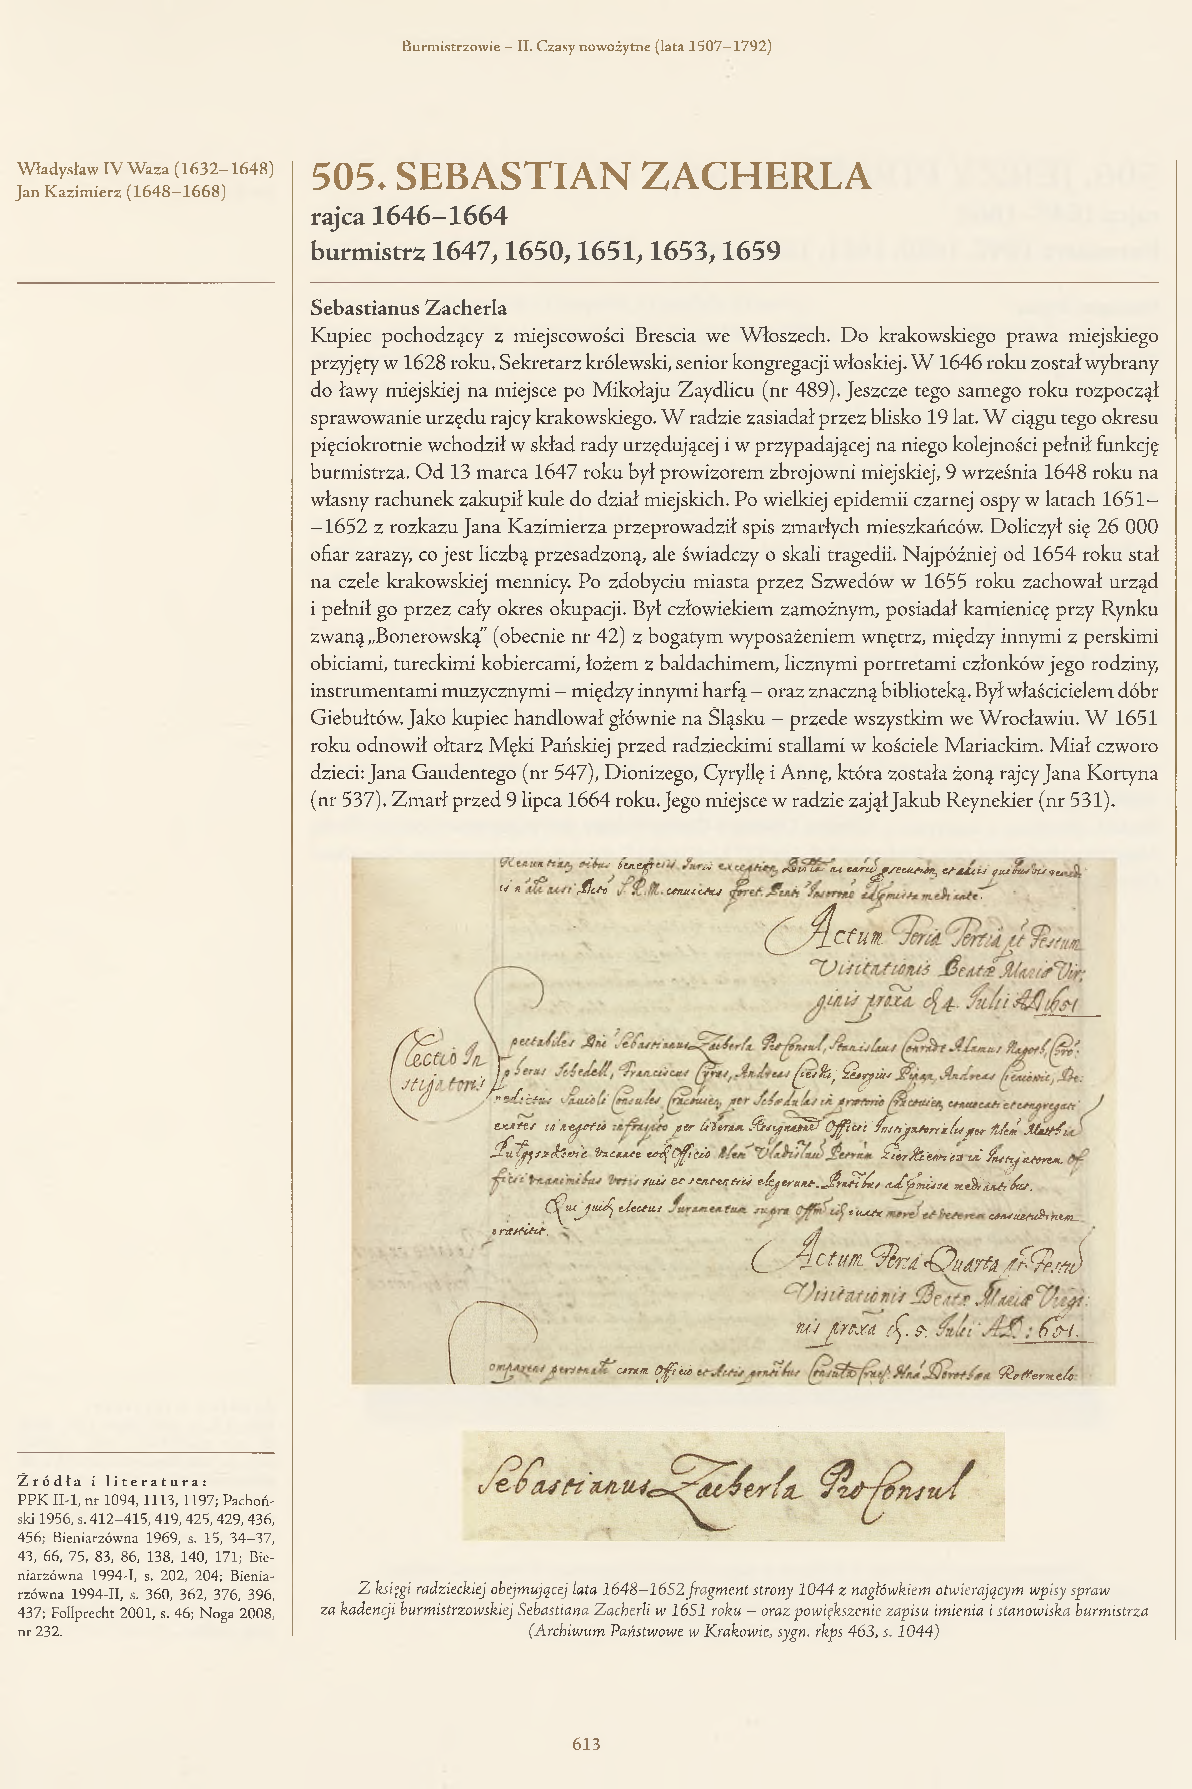 Burmistrzowie – II. Czasy nowożytne (lata 1507–1792)
Władysław IV Waza (1632–1648)
Jan Kazimierz (1648–1668)
505. SEBASTIAN ZACHERLA
rajca 1646–1664
burmistrz 1647, 1650, 1651, 1653, 1659
Sebastianus Zacherla
Kupiec pochodzący z miejscowości Brescia we Włoszech. Do krakowskiego prawa miejskiego
przyjęty w 1628 roku. Sekretarz królewski, senior kongregacji włoskiej. W 1646 roku został wybrany
do ławy miejskiej na miejsce po Mikołaju Zaydlicu (nr 489). Jeszcze tego samego roku rozpoczął
sprawowanie urzędu rajcy krakowskiego. W radzie zasiadał przez blisko 19 lat. W ciągu tego okresu
pięciokrotnie wchodził w skład rady urzędującej i w przypadającej na niego kolejności pełnił funkcję
burmistrza. Od 13 marca 1647 roku był prowizorem zbrojowni miejskiej, 9 września 1648 roku na
własny rachunek zakupił kule do dział miejskich. Po wielkiej epidemii czarnej ospy w latach 1651–
–1652 z rozkazu Jana Kazimierza przeprowadził spis zmarłych mieszkańców. Doliczył się 26 000
ofiar zarazy, co jest liczbą przesadzoną, ale świadczy o skali tragedii. Najpóźniej od 1654 roku stał
na czele krakowskiej mennicy. Po zdobyciu miasta przez Szwedów w 1655 roku zachował urząd
i pełnił go przez cały okres okupacji. Był człowiekiem zamożnym, posiadał kamienicę przy Rynku
zwaną „Bonerowską” (obecnie nr 42) z bogatym wyposażeniem wnętrz, między innymi z perskimi
obiciami, tureckimi kobiercami, łożem z baldachimem, licznymi portretami członków jego rodziny,
instrumentami muzycznymi – między innymi harfą – oraz znaczną biblioteką. Był właścicielem dóbr
Giebułtów. Jako kupiec handlował głównie na Śląsku – przede wszystkim we Wrocławiu. W 1651
roku odnowił ołtarz Męki Pańskiej przed radzieckimi stallami w kościele Mariackim. Miał czworo
dzieci: Jana Gaudentego (nr 547), Dionizego, Cyryllę i Annę, która została żoną rajcy Jana Kortyna
(nr 537). Zmarł przed 9 lipca 1664 roku. Jego miejsce w radzie zajął Jakub Reynekier (nr 531).
Actum Feria Tertia Festum
Visitationis Beatæ Mariæ Vir:
ginis 4. Julii
Electio In
stigatoris
Sebastianus Zacherla Stanislaus Adamus
Schedell, Franciscus Cyrus, Andreas Georgius Andreas
Consules per Schedulas in prætorio
in negotio per liberam Officii per
Officio
suis et sententiis elegerunt.
electus Juramentum supra more et veterem consuetudinem
præstitit.
Actum Feria Quarta Festu
Visitationis Beatæ Mariæ Virgi:
nis 5. Julii
coram Officio
Sebastianus Zacherla ProConsul
Z księgi radzieckiej obejmującej lata 1648–1652 fragment strony 1044 z nagłówkiem otwierającym wpisy spraw
za kadencji burmistrzowskiej Sebastiana Zacherli w 1651 roku – oraz powiększenie zapisu imienia i stanowiska burmistrza
(Archiwum Państwowe w Krakowie, sygn. rkps 463, s. 1044)
Źródła i literatura:
PPK II-1, nr 1094, 1113, 1197; Pachoń-
ski 1956, s. 412–415, 419, 425, 429, 436,
456; Bieniarzówna 1969, s. 15, 34–37,
43, 66, 75, 83, 86, 138, 140, 171; Bie-
niarzówna 1994-I, s. 202, 204; Bienia-
rzówna 1994-II, s. 360, 362, 376, 396,
437; Follprecht 2001, s. 46; Noga 2008,
nr 232.
613